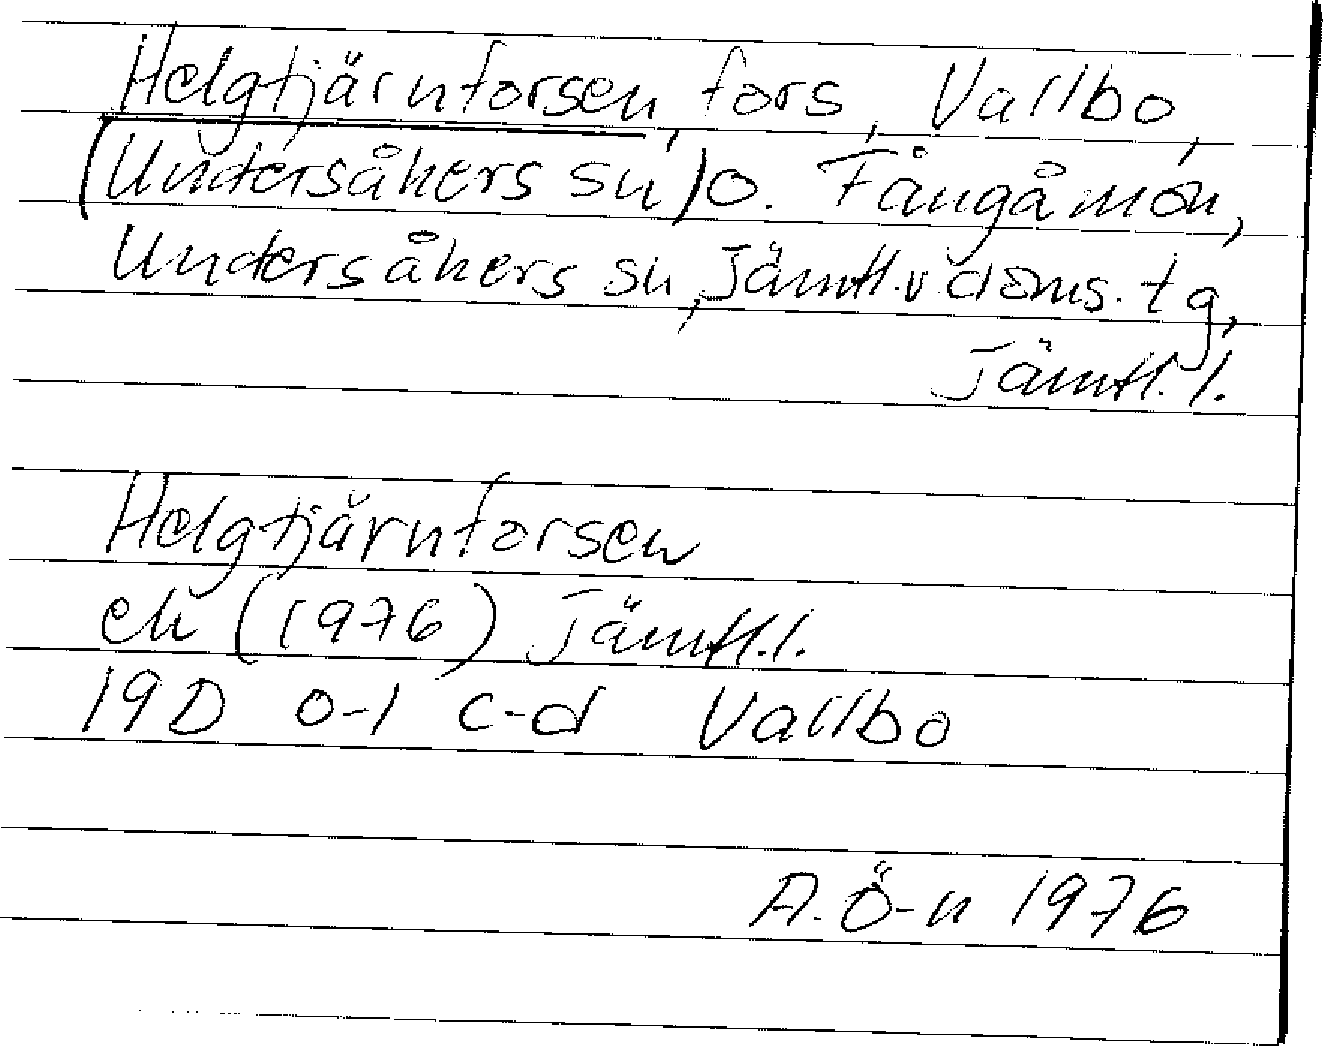 Helgtjärnforsen, fors, Vallbo,
(Undersåkers sn) o. Fångåmon,
Undersåkers sn, Jämtl. v. doms. tg,
Jämtl. l.
Helgtjärnforsen
ek (1976) Jämtl. l.
19D 0-1 c-d Vallbo
A. Ö-n 1976